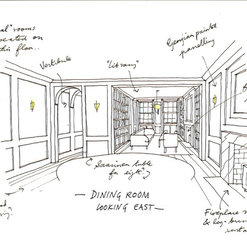 al" rooms
ocated on
this floor..
Vestibule
"Library"
Georgian painted
panelling
("Saarinen table
for eight")
— DINING ROOM
LOOKING EAST —
Fireplace
& log-bur